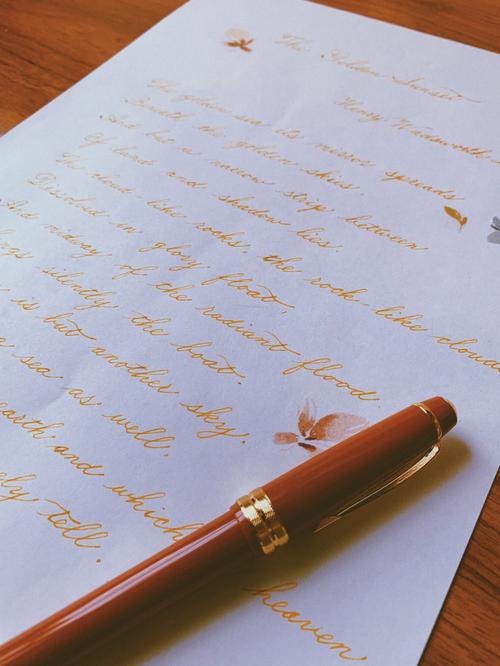 The Golden Sunset
Henry Wadsworth
The golden sea its mirror spreads
Beneath the golden skies.
And but a narrow strip between
Of land and shadow lies.
The cloud-like rocks, the rock-like clouds
Dissolved in glory float,
And midway of the radiant flood
silently the boat.
is but another sky.
sea as well.
earth and which heaven
tell.